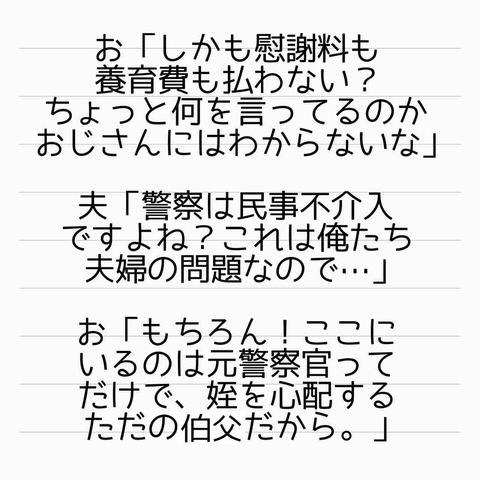 お「しかも慰謝料も
養育費も払わない？
ちょっと何を言ってるのか
おじさんにはわからないな」
夫「警察は民事不介入
ですよね？これは俺たち
夫婦の問題なので…」
お「もちろん！ここに
いるのは元警察官って
だけで、姪を心配する
ただの伯父だから。」